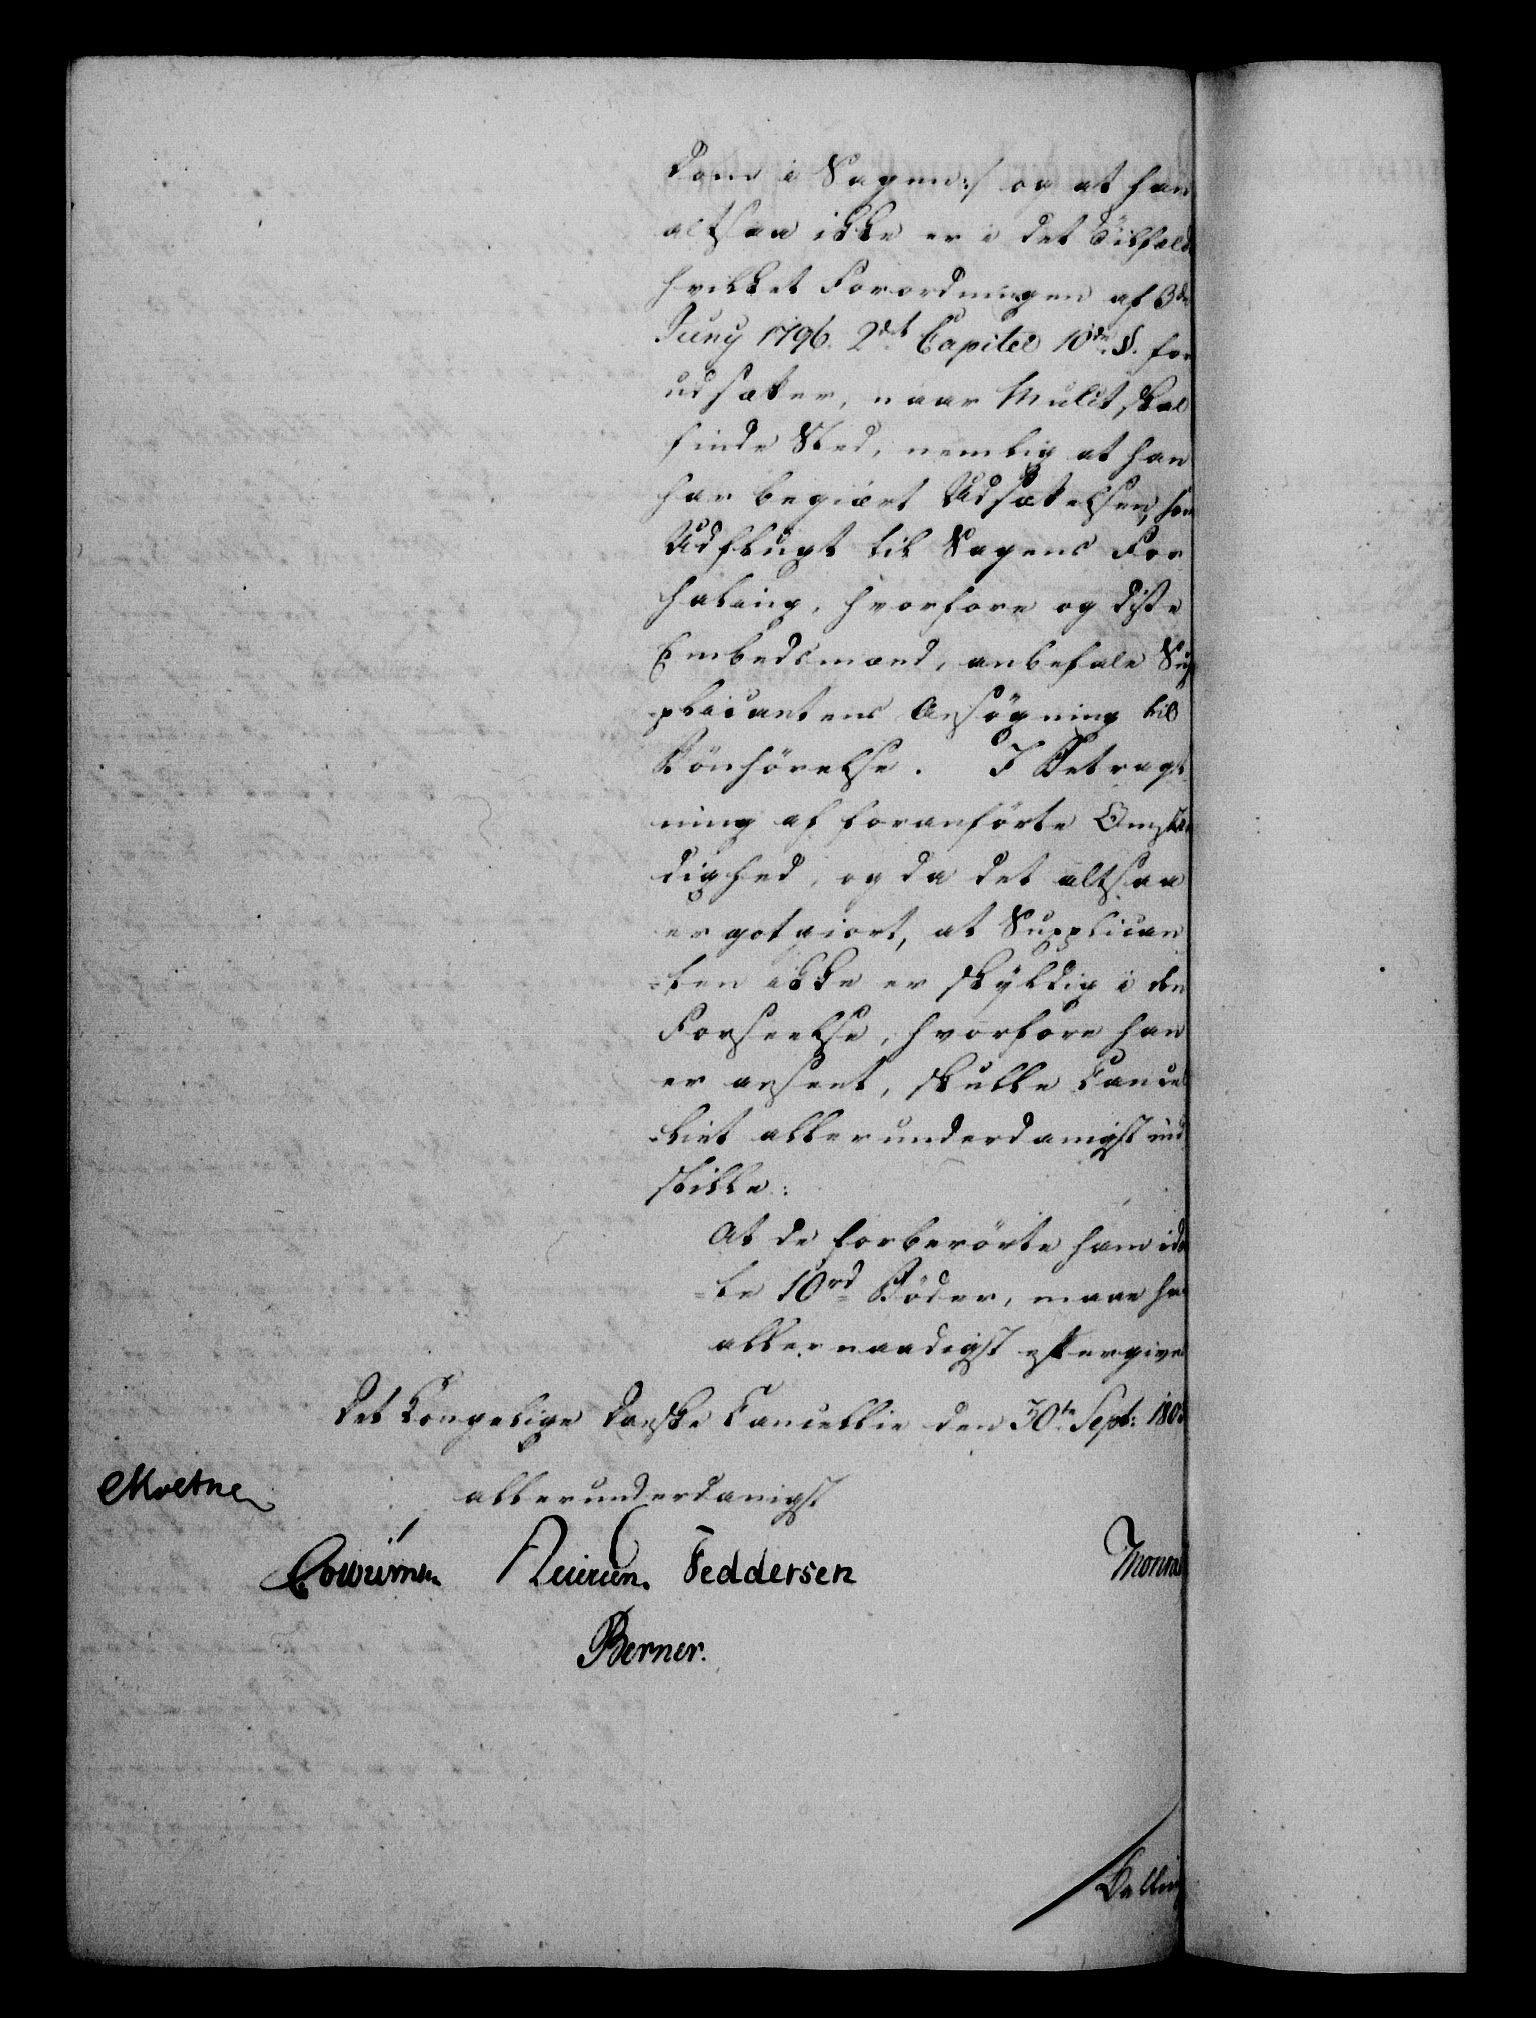 Dom i Sagen:/ og at han
altsaa ikke er i det Tilfælde
hvilket Forordningen af 3de
Juny 1796. 2det Capitel 10de §. for
udsætter, naar Mulct skal
finde Sted, nemlig at han
har begiært Udsættelsen, som
Udflugt til Sagens For
haling, hvorfore og disse
Embedsmænd, anbefale Sup
plicantens Ansøgning til
Bönhörelse. I Betragt
ning af foranförte Omstæn
dighed, og da det altsaa
er gotgiort, at Supplican
=ten ikke er skyldig i den
Forseelse, hvorfore han
er anseet, skulle Cancel
=liet allerunderdanigst ind
stille:
At de forberörte ham idöm
=te 10 rd Böder, maae ham
allernaadigst eftergives
Det Kongelige Danske Cancellie den 30te Sept: 180
allerunderdanigst
Moltke
Cowumn Feddersen Monrad
Berner.